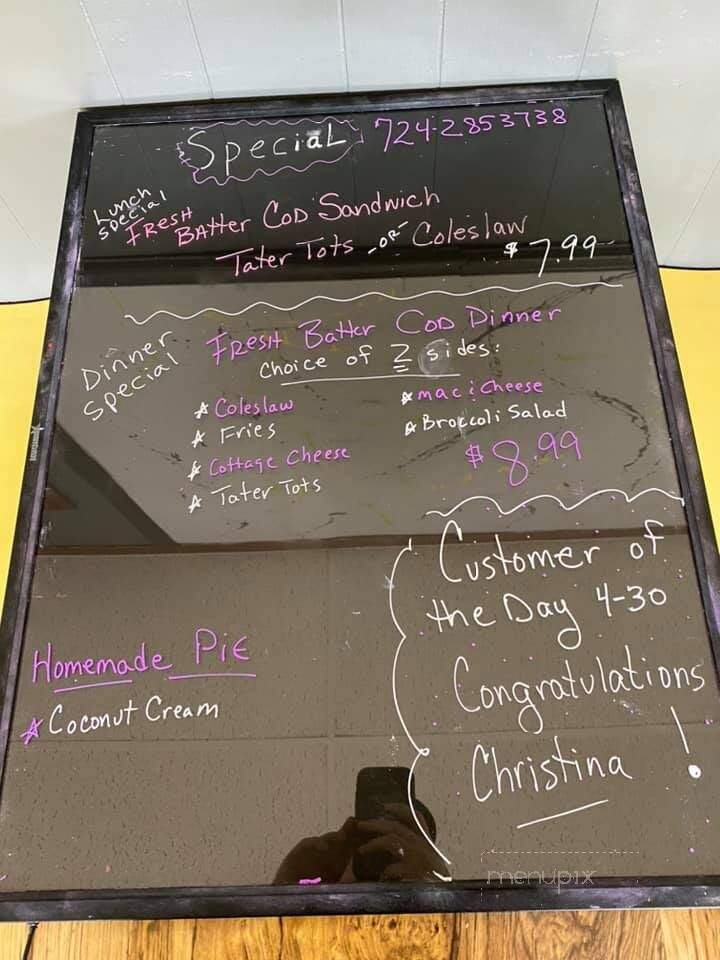 Special 724-2853738
Lunch
Special
Fresh
Batter Cod Sandwich
Tater Tots -or- Coleslaw
$7.99
Dinner
Special
Fresh Batter Cod Dinner
Choice of 2 sides:
Coleslaw
Fries
Cottage Cheese
Tater Tots
mac & Cheese
Broccoli Salad
$8.99
Customer of
the Day 4-30
Congratulations
Christina !
Homemade Pie
Coconut Cream
menupix